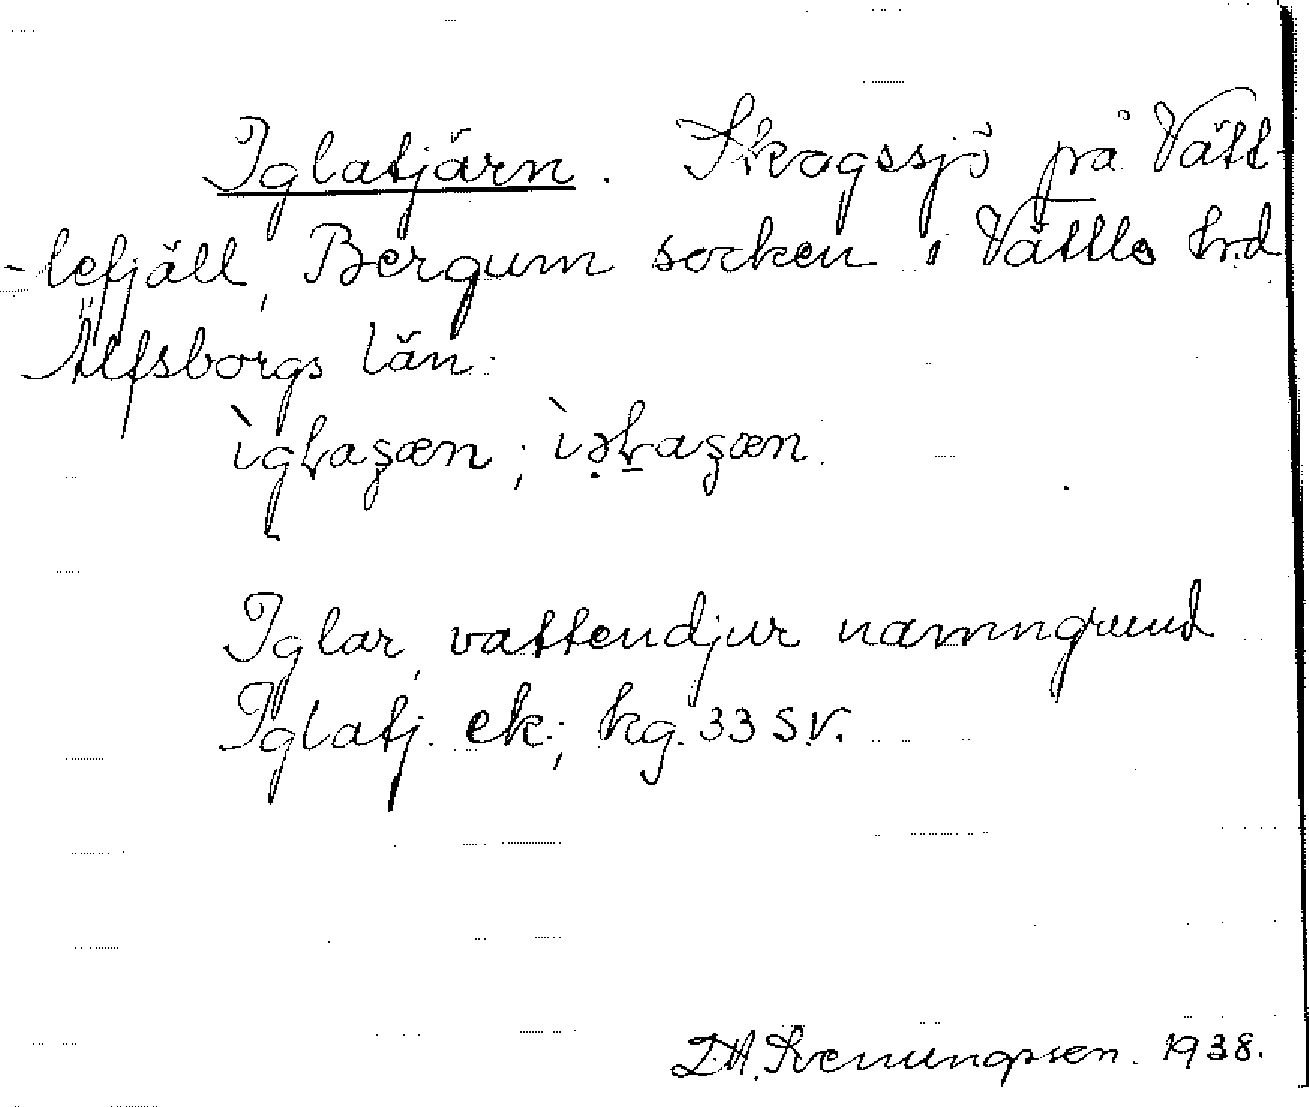 Iglatjärn. Skogssjö på Vätt-
-lefjäll, Bergum socken i Vättle hrd
Älfsborgs län.
Iglar, vattendjur namngrund
Iglatj. ek.; kg. 33 SV.
D.A. Svenungsson. 1938.